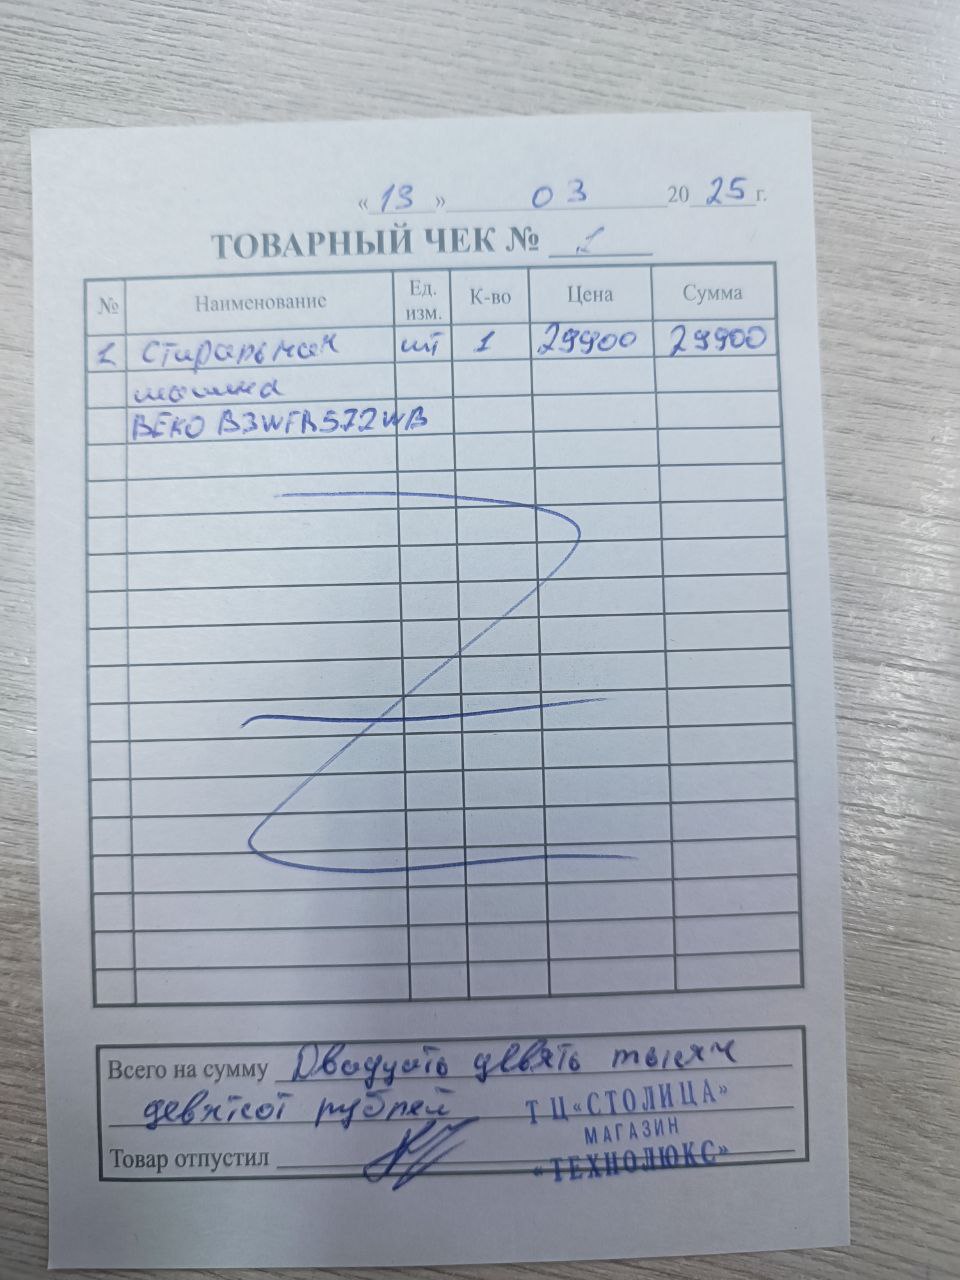 « 13 » 03 20 25 г.
ТОВАРНЫЙ ЧЕК № 1
№ Наименование Ед. изм. К-во Цена Сумма
1 Стиральная шт 1 29900 29900
машина
BEKO B3WFR572WB
Всего на сумму Двадцать девять тысяч
девятсот рублей
Т Ц «СТОЛИЦА»
МАГАЗИН
Товар отпустил «ТЕХНОЛЮКС»